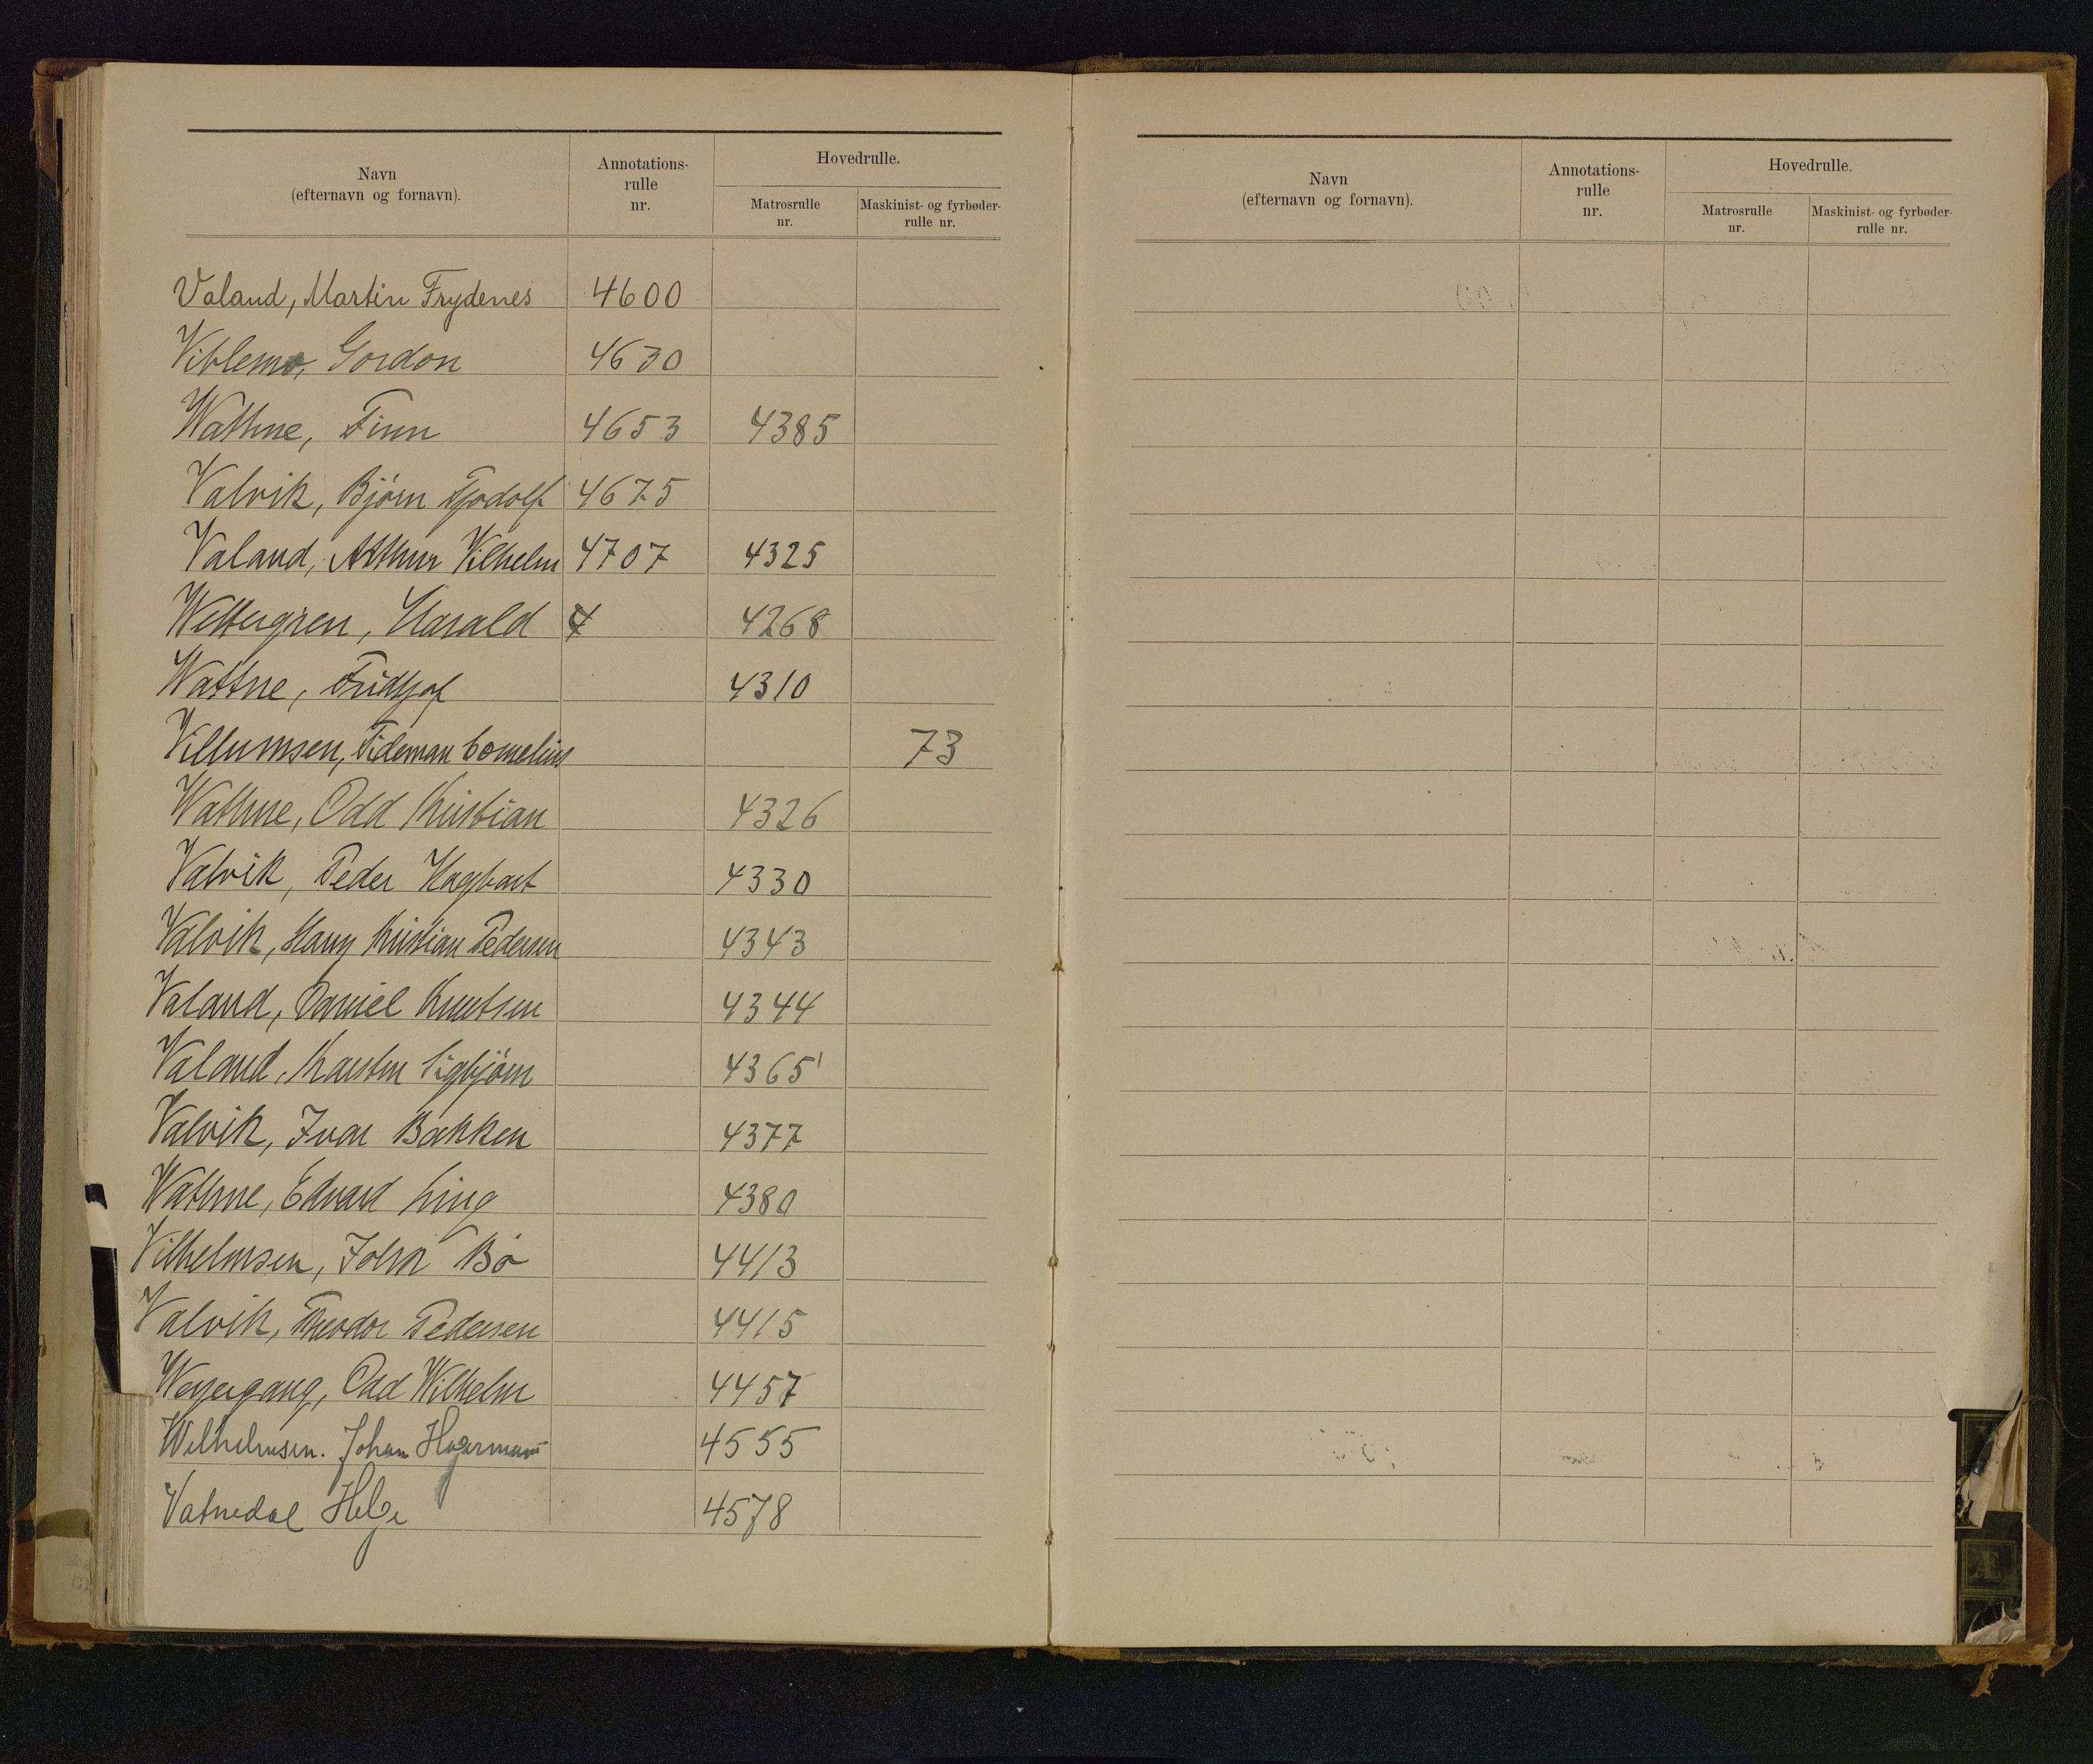 Navn
(efternavn og fornavn).
Annotations-
rulle
nr.
Hovedrulle.
Matrosrulle
nr.
Maskinist- og fyrbøder-
rulle nr.
Valand, Martin Frydenes 4600
Viblemo, Gordon 4630
Wathne, Finn 4653 4385
Valvik, Bjørn Tjodolf 4675
Valand, Arthur Vilhelm 4707 4325
Wettergren, Harald 4268
Wattne, Fridtjof 4310
Villumsen, Tideman Cornelius 73
Wathne, Odd Kristian 4326
Valvik, Peder Hagbart 4330
Valvik, Hans Kristian Pedersen 4343
Valand, Daniel Knutsen 4344
Valand, Karsten Sigbjørn 4365
Valvik, Ivar Bakken 4377
Wathne, Edvard Ling 4380
Vilhelmsen, John Bø 4413
Valvik, Theodor Pedersen 4415
Weyergang, Odd Wilhelm 4457
Wilhelmsen. Johan Hagermann 4555
Vatnedal Helge 4578
Navn
(efternavn og fornavn).
Annotations-
rulle
nr.
Hovedrulle.
Matrosrulle
nr.
Maskinist- og fyrbøder-
rulle nr.
Æ